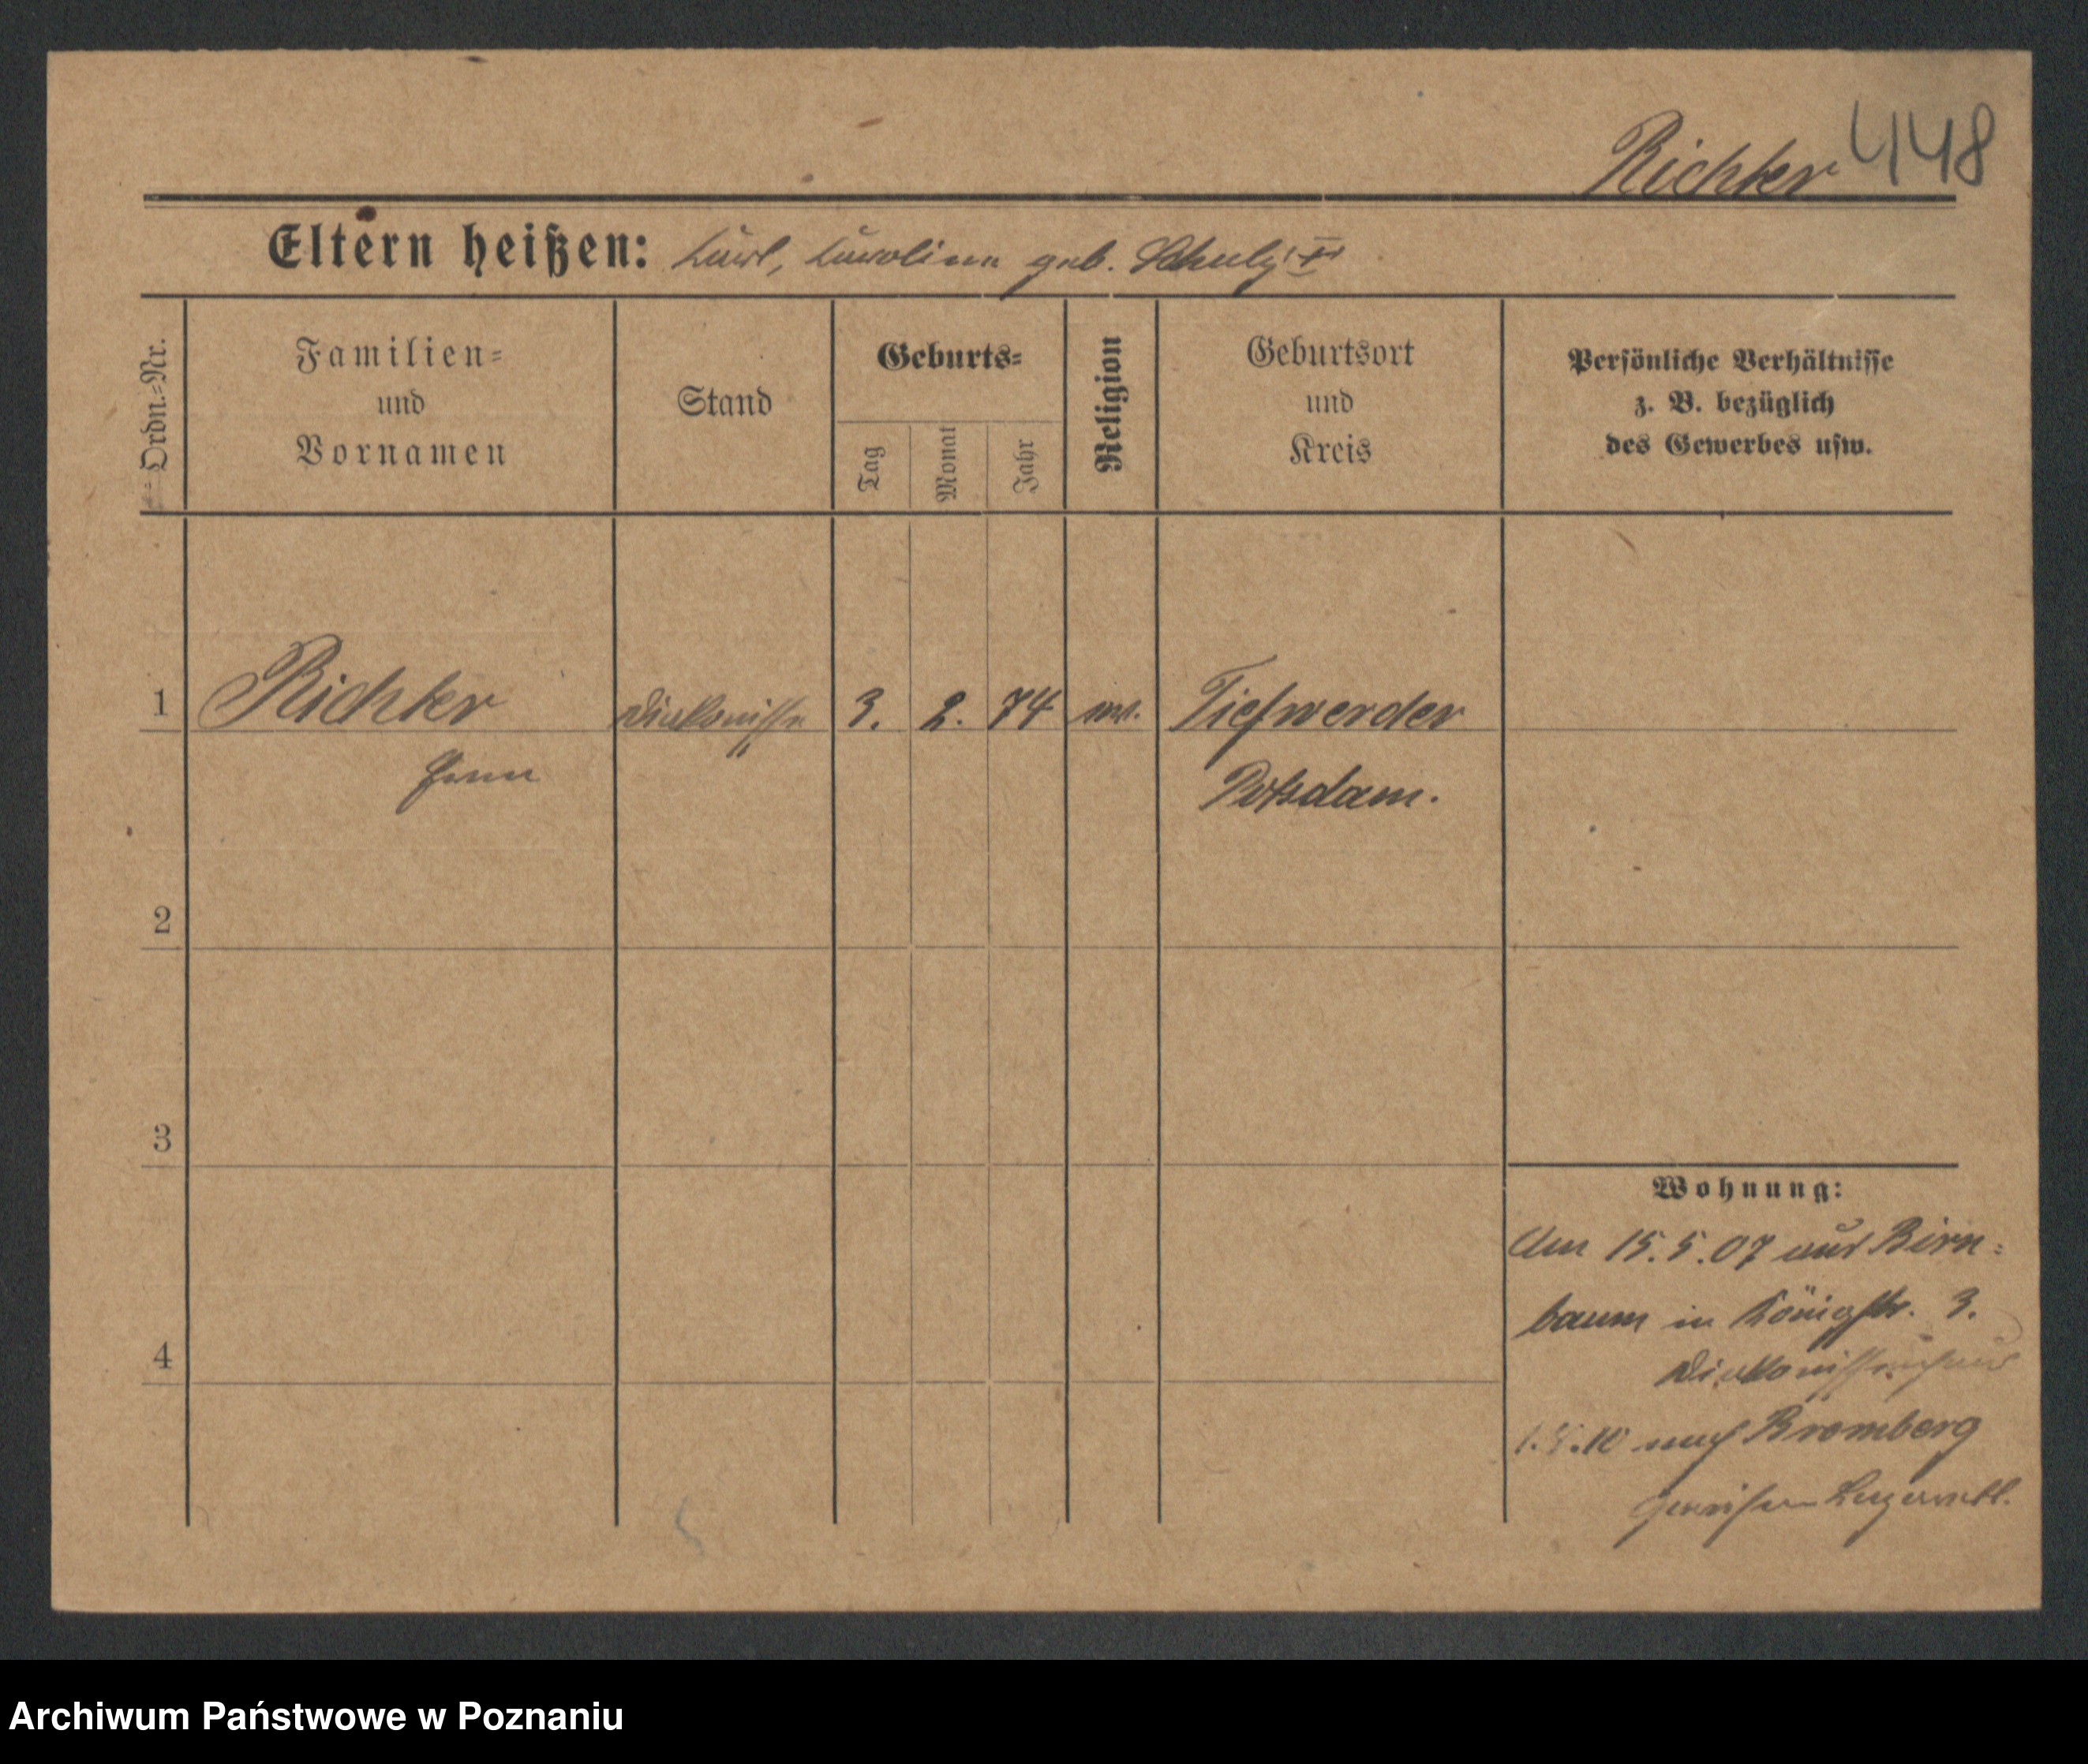 Richter 448
Eltern heißen: Karl, Karoline geb. Schulz
Ordn.=Nr.
Familien=
und
Vornamen
Stand
Geburts=
Tag
Monat
Jahr
Religion
Geburtsort
und
Kreis
Persönliche Verhältnisse
z. B. bezüglich
des Gewerbes usw.
1 Richter Diakonisse 3. 2. 74 ev. Tiefwerder
Potsdam.
2
3
4
Wohnung:
Am 15.5.07 aus Birn=
baum in Königstr. 3.
Diakonissenhaus
nach Bromberg
Archiwum Państwowe w Poznaniu